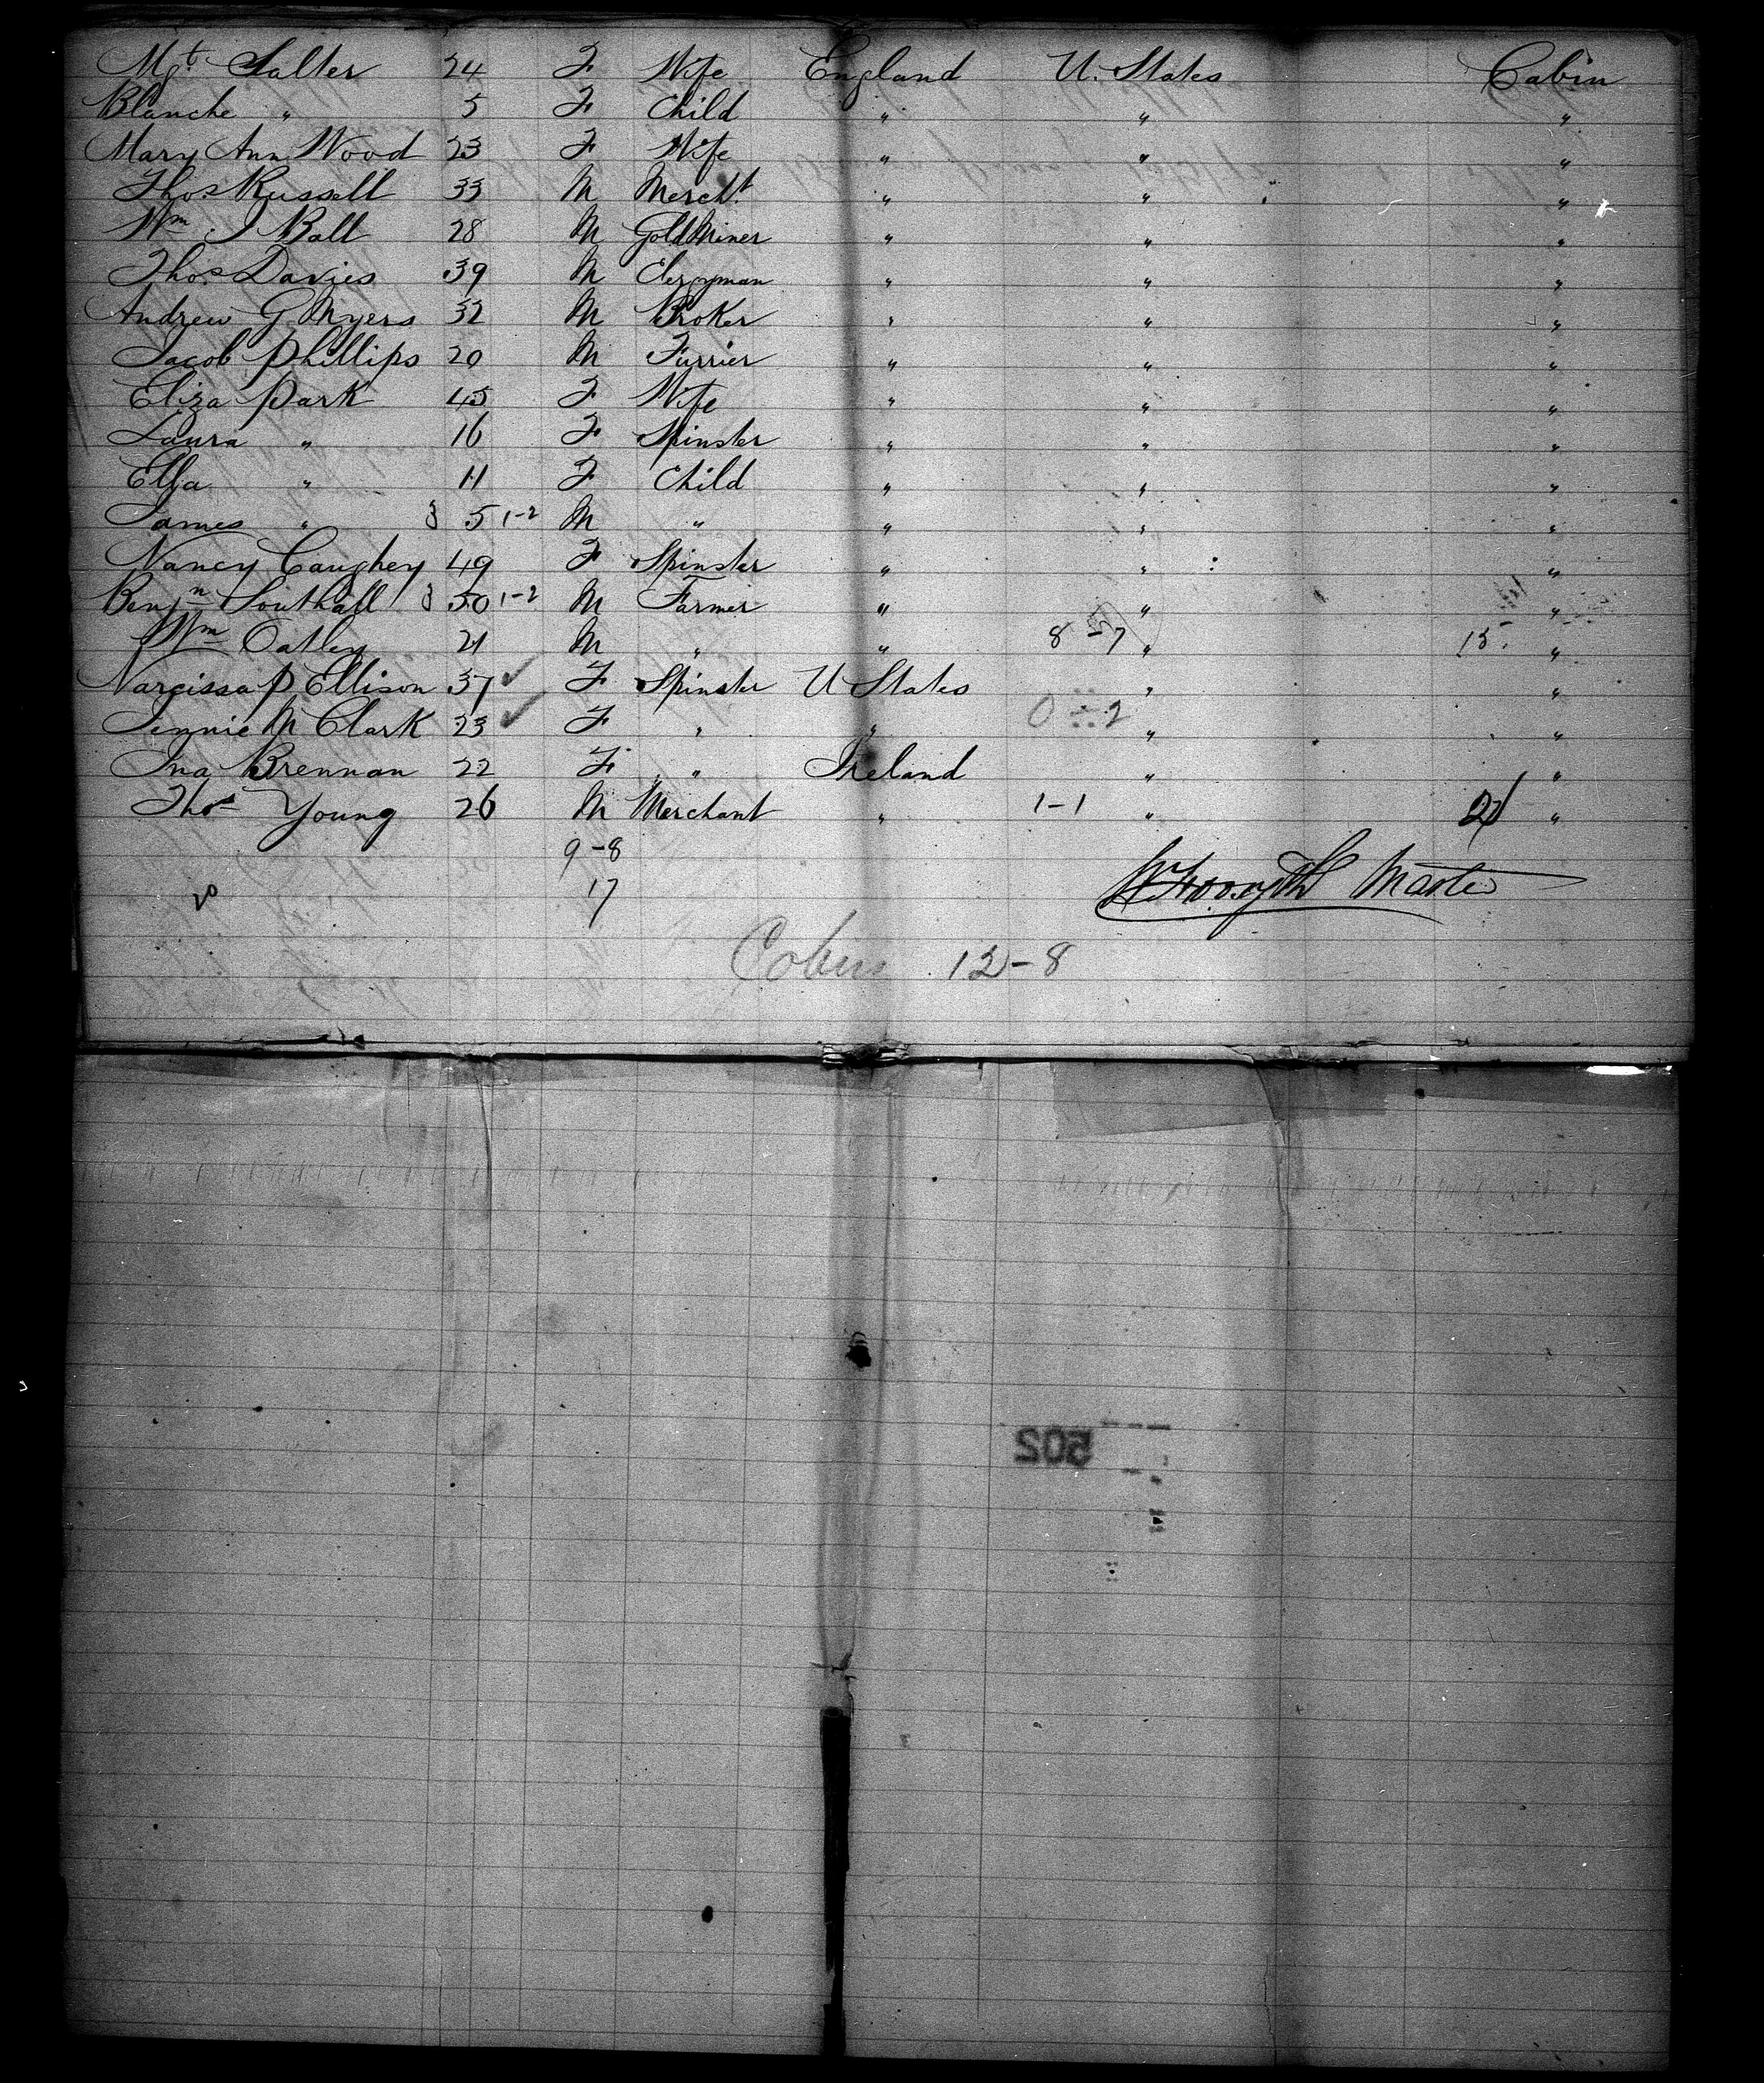 Mgt. Salter 24 F Wife England U. States Cabin
Blanche " 5 F Child " " "
Mary Ann Wood 23 F Wife " " "
Thos. Russell 33 M Mercht. " " "
Wm J Ball 28 M Gold Miner " " "
Thos. Davies 39 M Clergyman " " "
Andrew G Myers 32 M Broker " " "
Jacob Phillips 20 M Furrier " " "
Eliza Park 45 F Wife " " "
Laura " 16 F Spinster " " "
Ella " 11 F Child " " "
James " 5 1-2 M " " " "
Nancy Caughey 49 F Spinster " " "
Benjn Southall 50 1-2 M Farmer " " "
Wm Oatley 21 M " " 8-7 " 15 "
Narcissa P Ellison 37 F Spinster U States " "
Jennie M Clark 23 F " " 0-2 " "
Ina Brennan 22 F " Ireland " "
Thos Young 26 M Merchant " 1-1 " "
9-8
20 17 Master
Cabin 12-8
502